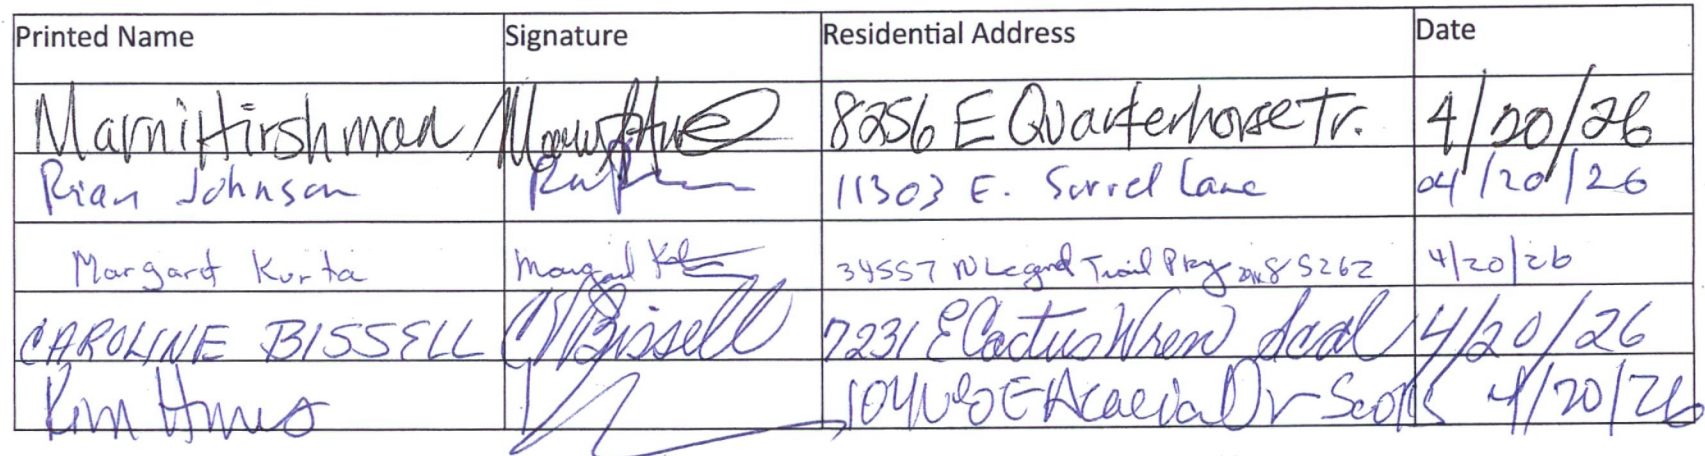 Printed Name Signature Residential Address Date
Marni Hirshman 8256 E Quarterhorse Tr. 4/20/26
Rian Johnson 11303 E. Sorrel Lane 04/20/26
Margaret Kurta 34557 N Legend Trail Pkwy 85262 4/20/26
CAROLINE BISSELL CBissell 7231 E Cactus Wren Scal 4/20/26
E Acacia Dr Scotts 4/20/26